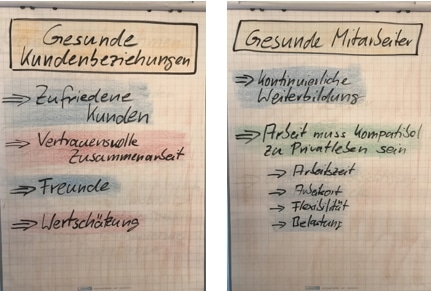 Gesunde
Kundenbeziehungen
⇒ Zufriedene
Kunden
⇒ Vertrauensvolle
Zusammenarbeit
⇒ Freunde
⇒ Wertschätzung
Gesunde Mitarbeiter
⇒ Kontinuierliche
Weiterbildung
⇒ Arbeit muss kompatibel
zu Privatleben sein
→ Arbeitszeit
→ Arbeitsort
→ Flexibilität
→ Belastung